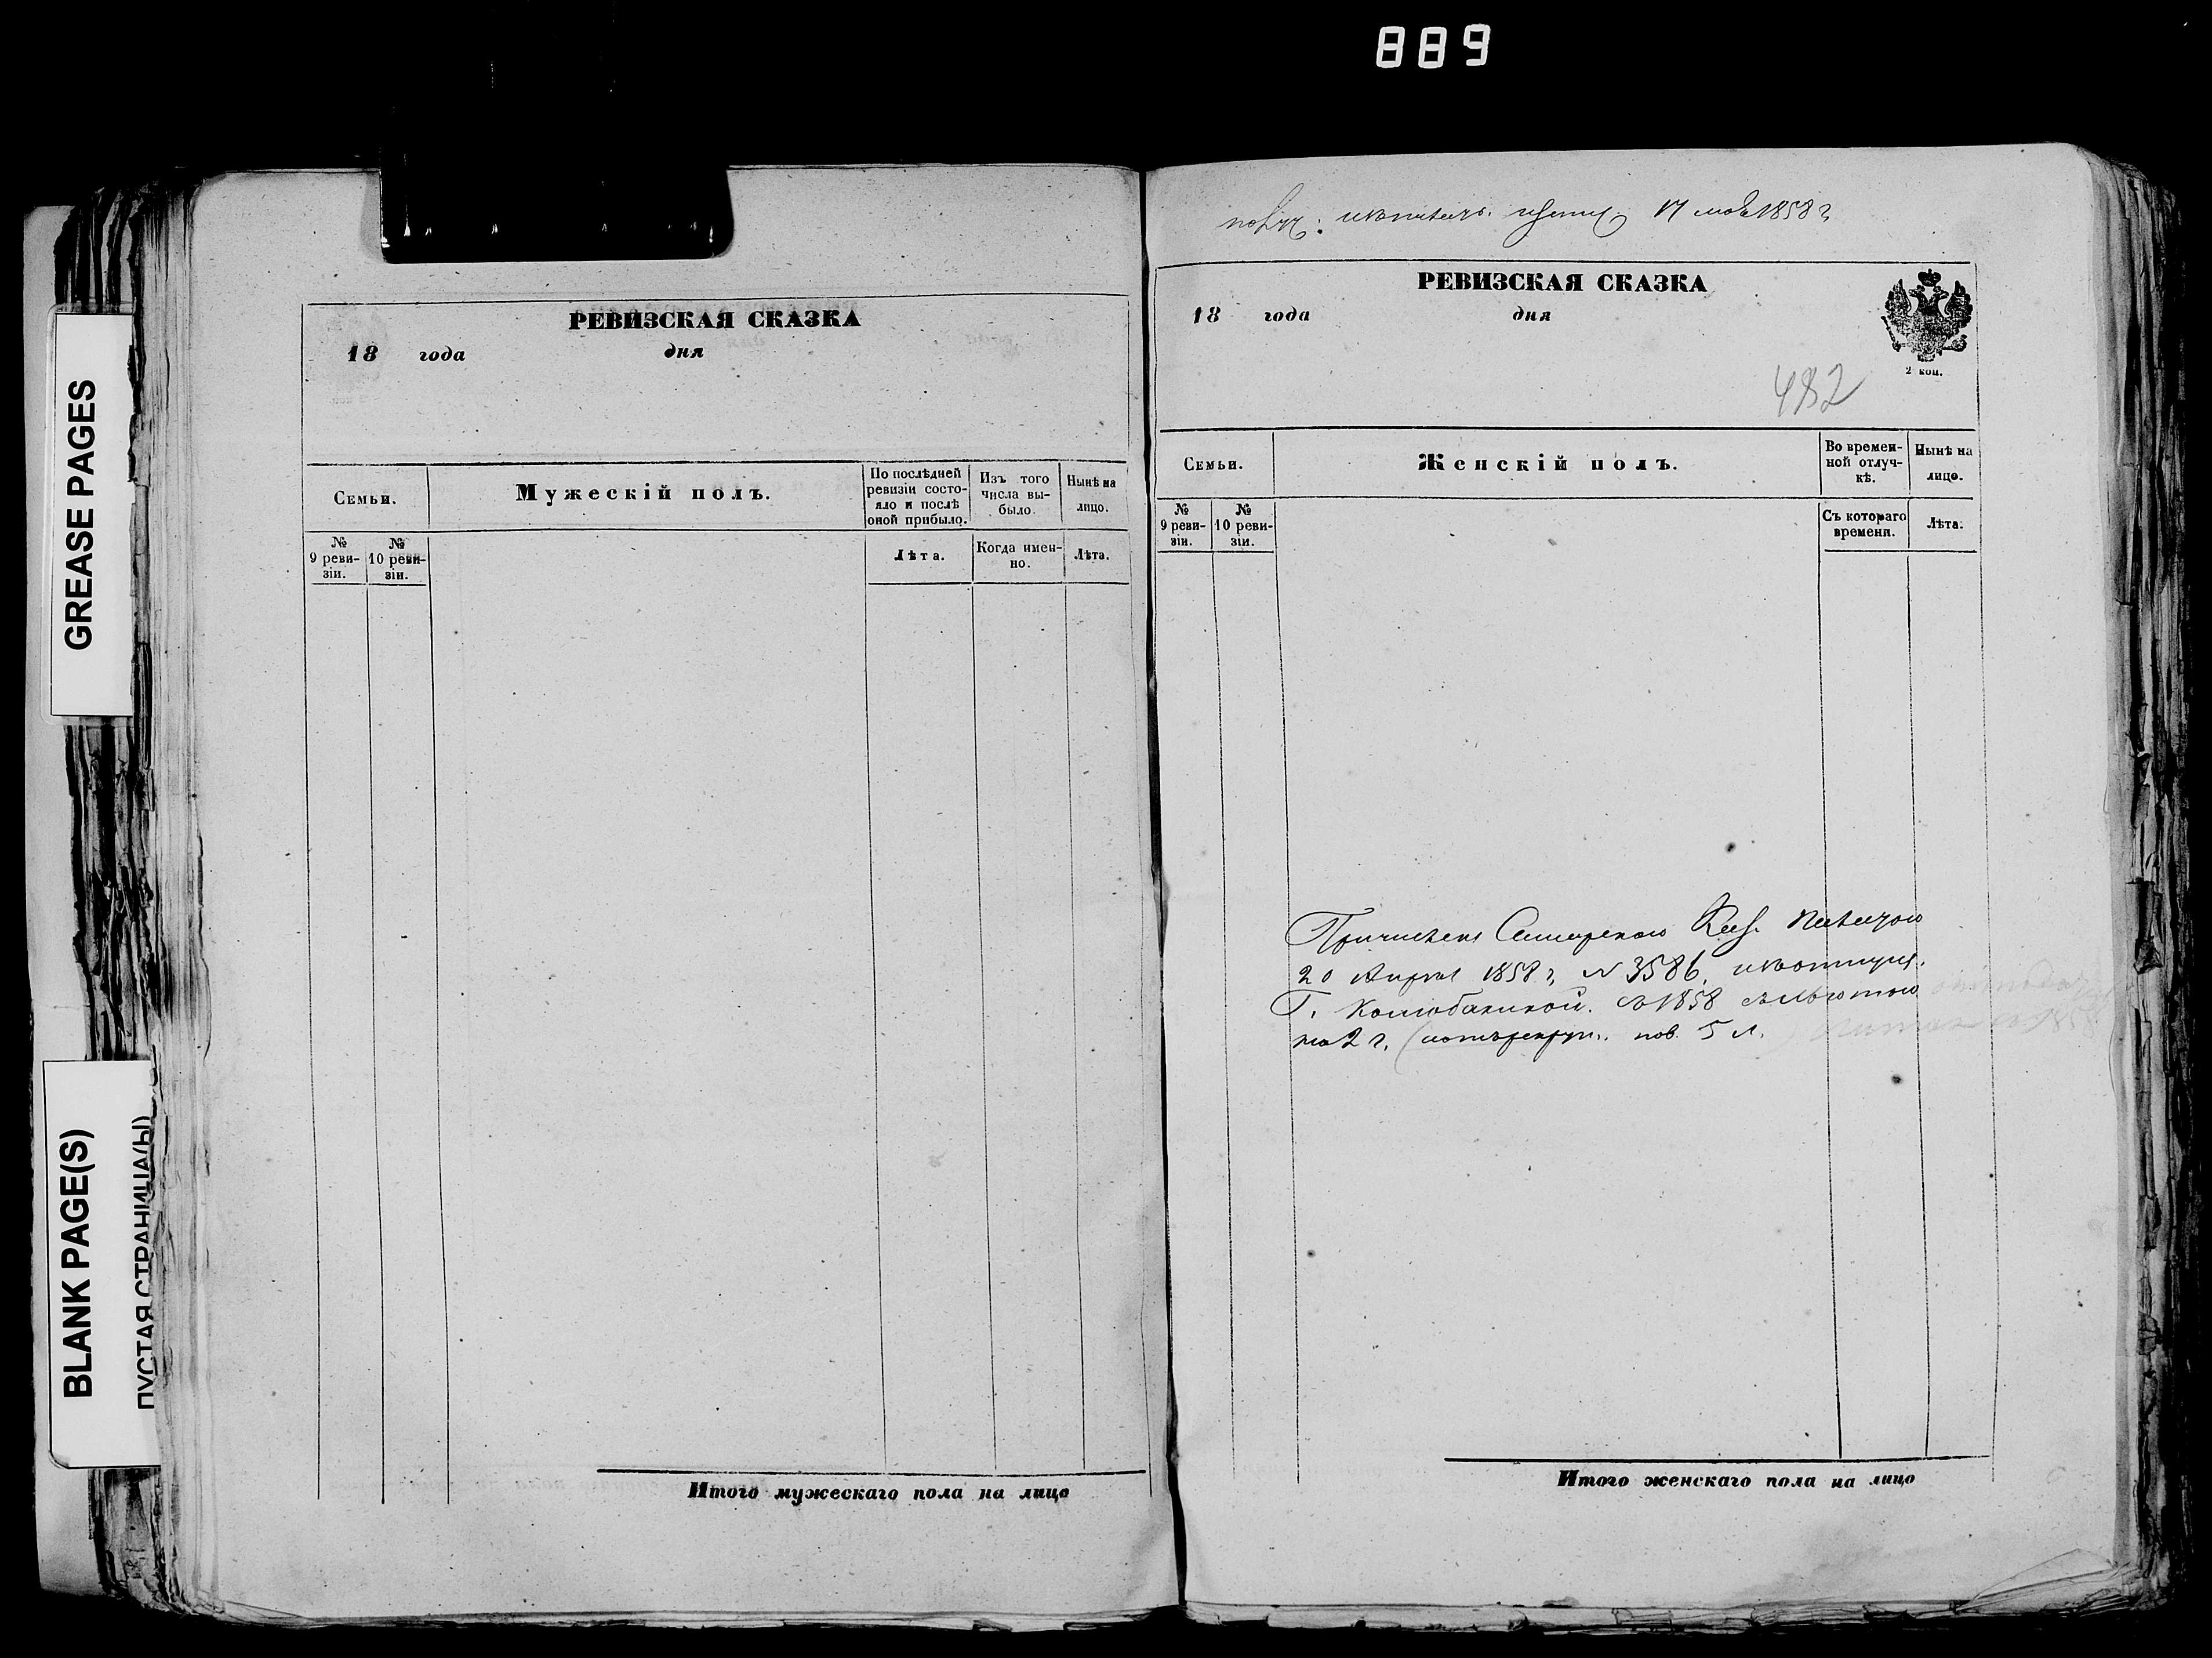 889
GREASE PAGES
BLANK PAGE(S)
ПУСТАЯ СТРАНИЦА(Ы)
РЕВИЗСКАЯ СКАЗКА
18 года дня
Семьи.
Мужескій полъ.
По послѣдней ревизіи состо-
яло и послѣ
оной прибыло.
Изъ того
числа вы-
было.
Нынѣ на
лицо.
№
9 реви-
зіи.
№
10 реви-
зіи.
Лѣта.
Когда имен-
но.
Лѣта.
Итого мужескаго пола на лицо
17 1858 г
РЕВИЗСКАЯ СКАЗКА
18 года дня
2 коп.
482
Семьи.
Женскій полъ.
Во времен-
ной отлуч-
кѣ.
Нынѣ на
лицо.
№
9 реви-
зіи.
№
10 реви-
зіи.
Съ котораго
времени.
Лѣта.
Причислены Самарскою Каз. Палатою
20 Апрѣля 1858 г, № 3586,
Г. Колюбакиной. съ 1858 сльготою
на 2 г. пов. 5 л.
Итого женскаго пола на лицо